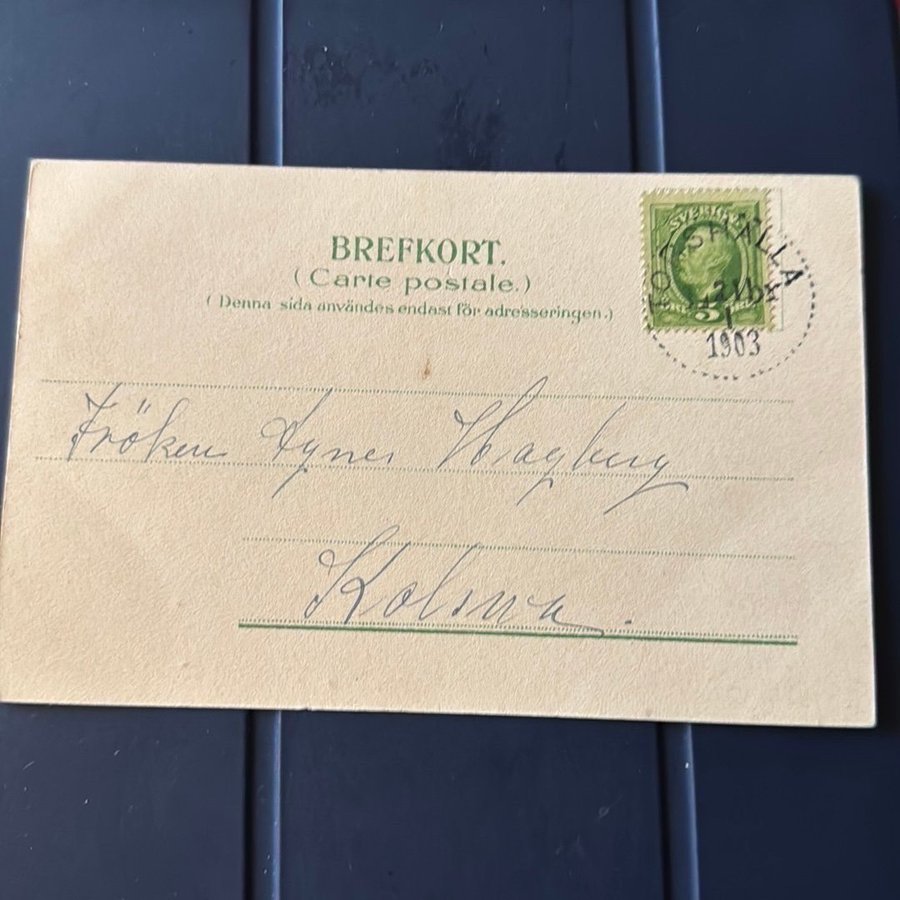 BREFKORT.
(Carte postale.)
(Denna sida användes endast för adresseringen.)
SVERIGE
5
SHÄLLA
1903
Fröken Agnes Hagberg
Kolsva.